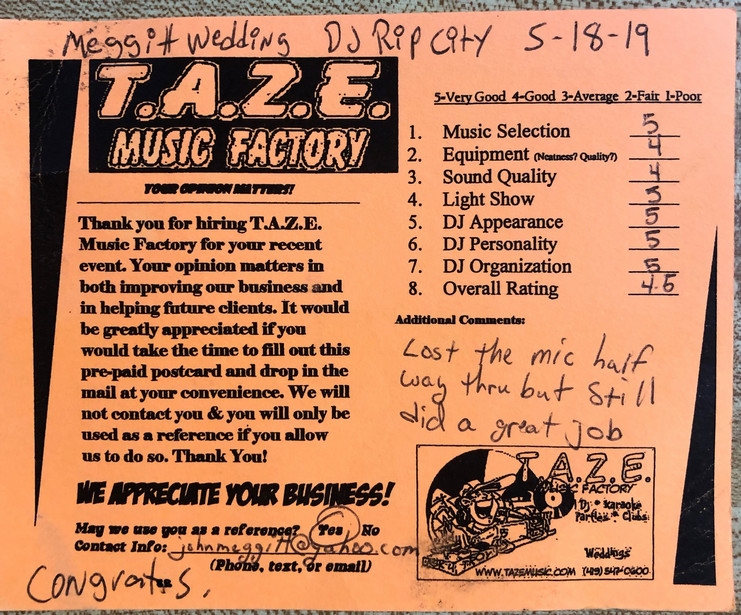 Meggitt Wedding DJ Rip City 5-18-19
T.A.Z.E.
MUSIC FACTORY
YOUR OPINION MATTERS!
Thank you for hiring T.A.Z.E.
Music Factory for your recent
event. Your opinion matters in
both improving our business and
in helping future clients. It would
be greatly appreciated if you
would take the time to fill out this
pre-paid postcard and drop in the
mail at your convenience. We will
not contact you & you will only be
used as a reference if you allow
us to do so. Thank You!
WE APPRECIATE YOUR BUSINESS!
May we use you as a reference? Yes No
Contact Info: johnmeggitt@yahoo.com
(Phone, text, or email)
Congrats,
5-Very Good 4-Good 3-Average 2-Fair 1-Poor
1. Music Selection 5
2. Equipment (Neatness? Quality?) 4
3. Sound Quality 4
4. Light Show 5
5. DJ Appearance 5
6. DJ Personality 5
7. DJ Organization 5
8. Overall Rating 4.5
Additional Comments:
Lost the mic half
way thru but still
did a great job
T.A.Z.E.
MUSIC FACTORY
Dj * Karaoke
Parties * Clubs
Weddings
WWW.TAZEMUSIC.COM (419) 547-0600